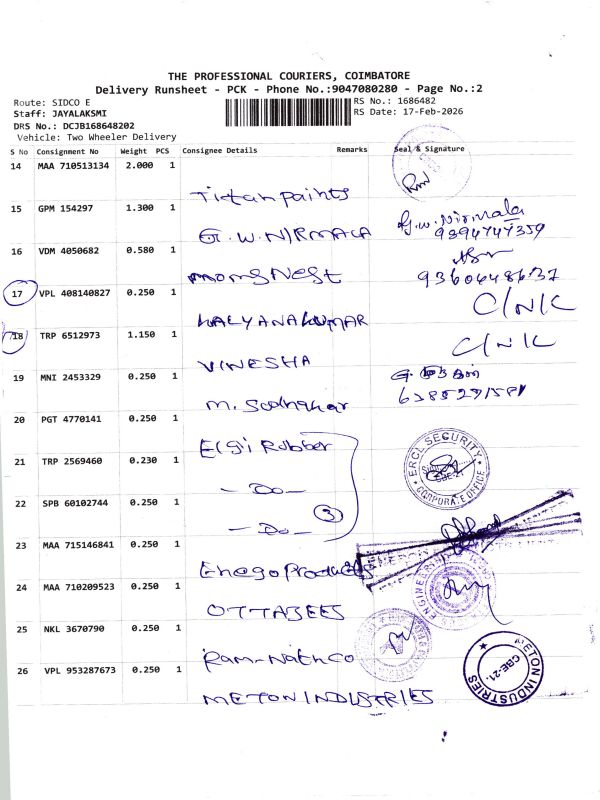 THE PROFESSIONAL COURIERS, COIMBATORE
Delivery Runsheet - PCK - Phone No.:9047080280 - Page No.:2
Route: SIDCO E
RS No.: 1686482
Staff: JAYALAKSMI
RS Date: 17-Feb-2026
DRS No.: DCJB168648202
Vehicle: Two Wheeler Delivery
S No Consignment No Weight PCS Consignee Details Remarks Seal & Signature
14 MAA 710513134 2.000 1
Titan paints
15 GPM 154297 1.300 1
G.W.NIRMALA G.W.Nirmala
9394747359
16 VDM 4050682 0.580 1
moms Nest
17 VPL 408140827 0.250 1 C/N/C
KALYANAKUMAR
18 TRP 6512973 1.150 1 C/N/C
VINESHA
19 MNI 2453329 0.250 1
m. Sudhakar 6385291581
20 PGT 4770141 0.250 1
Elgi Rubber
21 TRP 2569460 0.230 1 ERCL SECURITY CORPORATE OFFICE
-Do-
22 SPB 60102744 0.250 1
-Do- 3
23 MAA 715146841 0.250 1
Enego Products
24 MAA 710209523 0.250 1 ENGINEERING
OTTABEES
25 NKL 3670790 0.250 1
Ram-Nath co
26 VPL 953287673 0.250 1 METON INDUSTRIES CBE-21.
METON INDUSTRIES